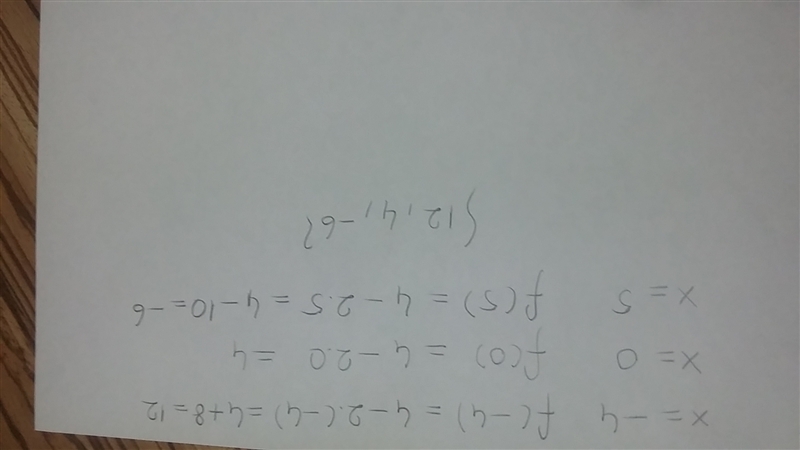 x = -4 f(-4) = 4 - 2.(-4) = 4+8 = 12
x = 0 f(0) = 4 - 2.0 = 4
x = 5 f(5) = 4 - 2.5 = 4 - 10 = -6
{12, 4, -6}